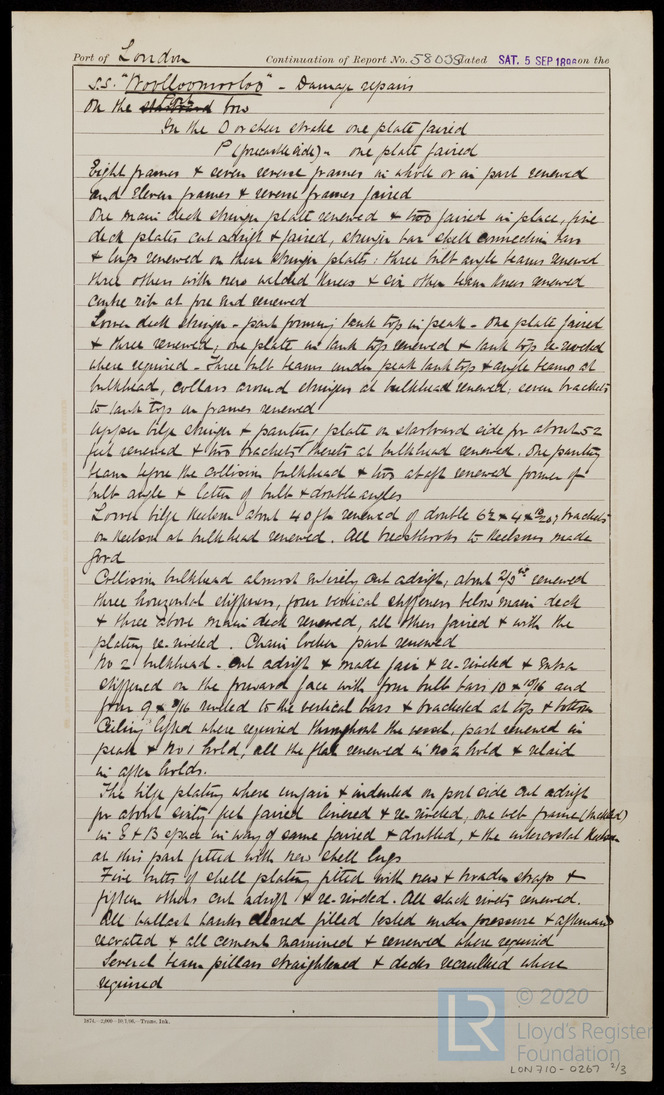 Port of London Continuation of Report No. 58039 dated SAT. 5 SEP 1896 on the
S.S. "Woolloomooloo" - Damage repairs
On the bow
In the O or sheer strake one plate faired
P (forecastle side) - one plate faired
Eight frames & seven reverse frames in whole or in part renewed
and eleven frames & reverse frames faired
One main deck stringer plate renewed & two faired in place, five
deck plates cut adrift & faired, stringer bar shell connection bars
& lugs renewed on these stringer plates: three bulb angle beams renewed
three others with new welded knees & six other beam knees renewed
centre rib at fore end renewed
Lower deck stringer - part forming tank top in peak - One plate faired
& three renewed; one plate in tank top renewed & tank top re-riveted
where required - Three bulb beams under peak tank top & angle beams at
bulkhead, collars around stringers at bulkhead renewed; seven brackets
to tank top in frames renewed
Upper bilge stringer & panting plate on starboard side for about 52
feet renewed & two brackets thereto at bulkhead renewed. One panting
beam before the collision bulkhead & two abaft renewed former of
bulb angle & latter of bulb & double angles
Lower bilge keelson about 40 ft renewed of double 6½ x 4 x 10/20; brackets
on keelson at bulkhead renewed. All breasthooks to keelsons made
good
Collision bulkhead almost entirely cut adrift, about 2/3rds renewed
three horizontal stiffeners, four vertical stiffeners below main deck
& three above main deck renewed, all others faired & with the
plating re-riveted. Chain locker part renewed
No 2 bulkhead - cut adrift & made fair & re-riveted & extra
stiffened on the forward face with four bulb bars 10 x 10/16 and
four 9 x 9/16 riveted to the vertical bars & bracketed at top & bottom
Ceiling lifted where required throughout the vessel, part renewed in
peak & No 1 hold, all the flat renewed in No 2 hold & relaid
in after holds.
The bilge plating where unfair & indented on port side cut adrift
for about sixty feet faired linered & re-riveted, one web frame (buckled)
in E & B space in way of same faired & doubled, & the intercostal keelson
at this part fitted with new shell lugs
Five butts of shell plating fitted with new & broader straps &
fifteen others cut adrift & re-riveted. All slack rivets renewed.
All ballast tanks cleared filled tested under pressure & afterwards
recoated & all cement examined & renewed where required
Several beam pillars straightened & decks recaulked where
required
1874.-2,000-10/7/96.-Trans. Ink.
LR © 2020
Lloyd's Register
Foundation
LON710-0267 2/3